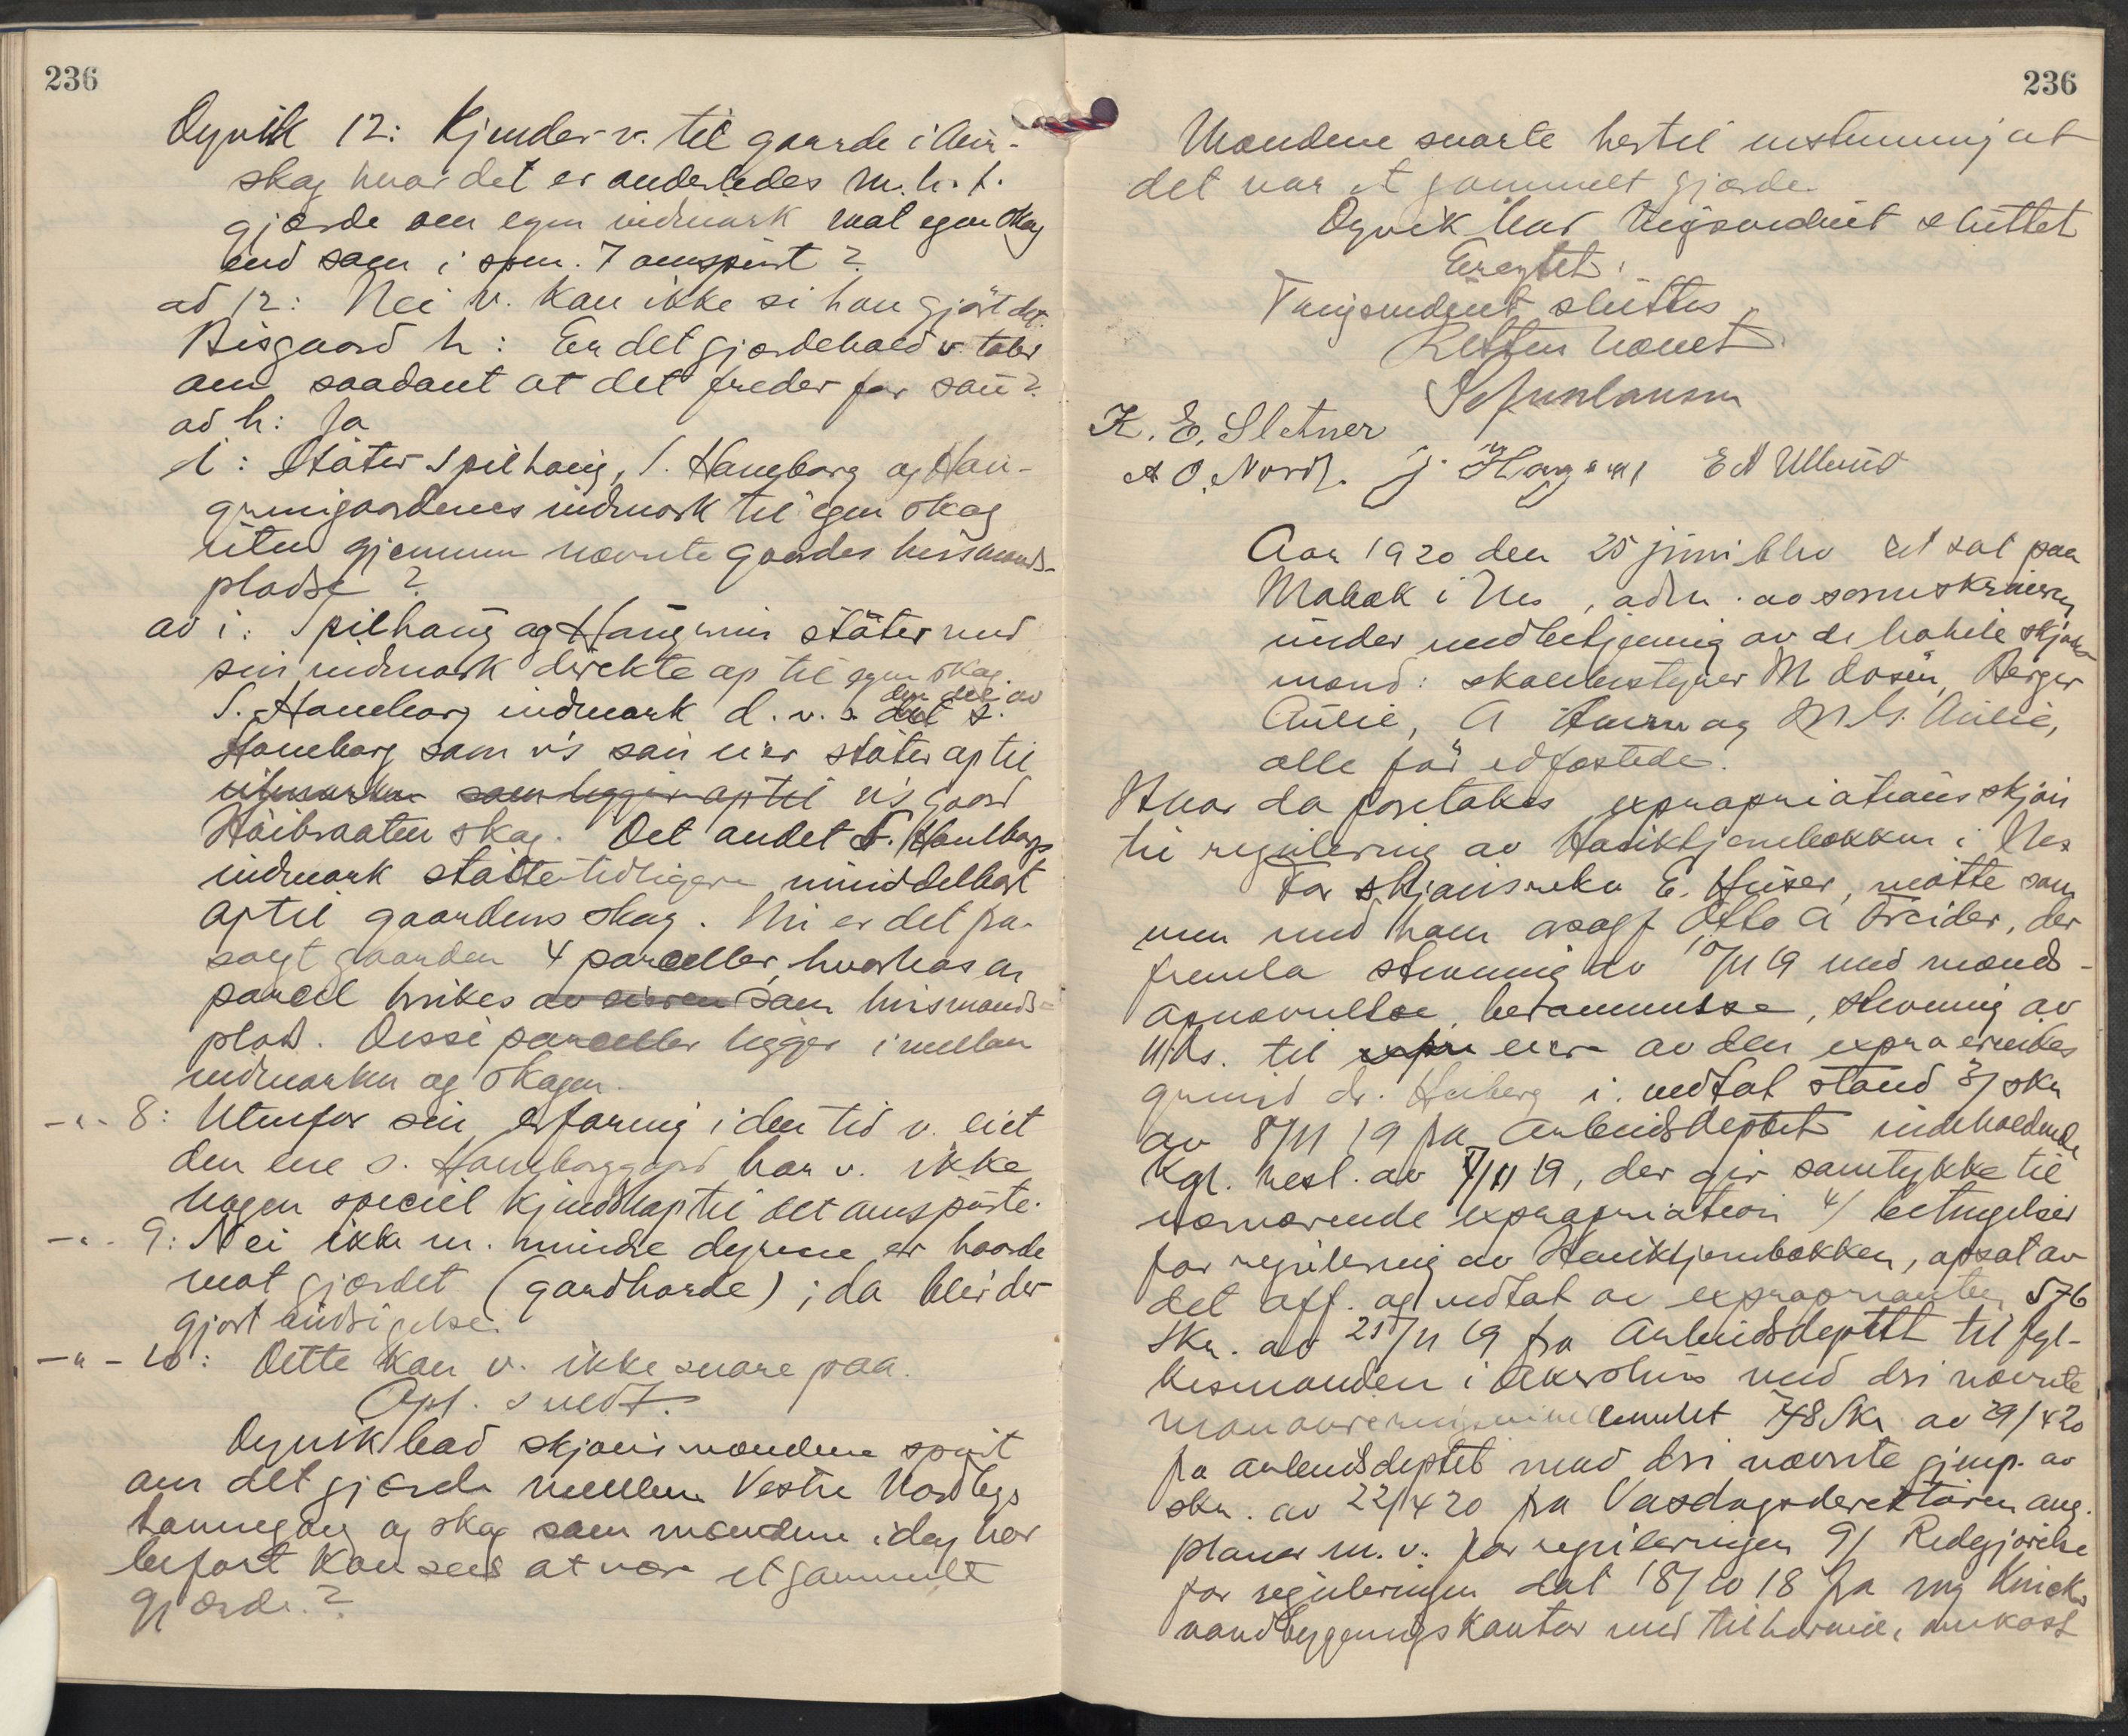 236
Dyvik 12: Kjender v. til gaarde i Aur-
skog hvor det er anderledes m.h.t.
gjærde om egen indmark mot egen skog
end som i spm. 7 omspurt?
ad 12: Nei v. kan ikke si han gjør det.
Bisgaard h: Er det gjærdehold v. taler
om saadant at det freder for sau?
ad h: Ja
i: Støter Spilhaug, S. Haneborg og Hau-
grungaardenes indmark til egen skog
uten gjennem nævnte gaardes husmands-
pladse?
ad i: Spilhaug og Haugrun støter med
sin indmark direkte op til egen skog.
S. Haneborg indmark d.v.s. den del av S.
Haneborg som v's søn eier støter op til
utmarken som ligger op til v's gaard
Høibraaten skog. Det andet S. Haneborgs
indmark støtte tidligere umiddelbart
op til gaardens skog. Nu er det fra-
solgt gaarden 4 parceller, hvorhos en
parcel brukes av eieren som husmands-
plads. Disse parceller ligger imellem
indmarken og skogen.
-"- 8: Utenfor sin erfaring i den tid v. eiet
den ene S. Haneborggaard har v. ikke
nogen speciel kjendskap til det omspurte.
-"- 9: Nei ikke m. mindre dyrene er haarde
mot gjærdet (gardharde); da blei der
gjort indsigelse.
-"- 10: Dette kan v. ikke svare paa.
Opl. & vedt.
Dyvik bad skjønsmændene spurt
om det gjærde mellem Vestre Nordbys
havnegang og skog som mændene idag har
befart kan sees at være et gammelt
gjærde?
236
Mændene svarte hertil enstemmig at
det var et gammelt gjærde.
Dyvik har tingsvidnet sluttet
Eragtet:
Tingsvidnet sluttes
Retten hævet
K. E. Sletner
A O. Nordl. J. Haga E A Ullerud
Aar 1920 den 25 juni blev ret sat paa
i Nes, adm. av sorenskriveren
under medbetjening av de hatele skjøns-
mænd: skolebestyrer M Rosén, Berger
Aulie, A og M. G. Aulie,
alle før edfæstede.
Hvor da foretakes expropriationsskjøn
til regulering av Hauktjernbækken i Nes
For skjønsrekv. E. Huser, møtte sam-
men med ham o.r.sagf. Otto A Treider, der
fremla stevning av 10/11 19 med mænds-
opnævnelse, berammelse, stevning av
11/ds. til eier av den exproprierendes
grund dr. Heiberg i. vedtat stand 3/ skr
av 8/11 19 fra Arbeidsdeptet indeholdende
Kgl. resl. av 7/11 19, der gir samtykke til
nærværende expropriation 4/ betingelser
for regulering av Hauktjernbækken, opsat av
det off. og vedtat av exproprianten 5 & 6
Skr. av 25/11 19 fra Arbeidsdeptet til fyl-
kesmanden i Akershus med dri nævnte
manøvreringsreglementet 7 & 8 Skr. av 29/4 20
fra arbeidsdeptet med dri nævnte gjenp. av
skr. av 22/4 20 fra Vasdragsdirektøren ang.
planer m.v. for reguleringen 9/ Redegjørelse
for reguleringen dat 18/10 18 fra ing Kincks
vandbygningskontor med tilhørende omkost